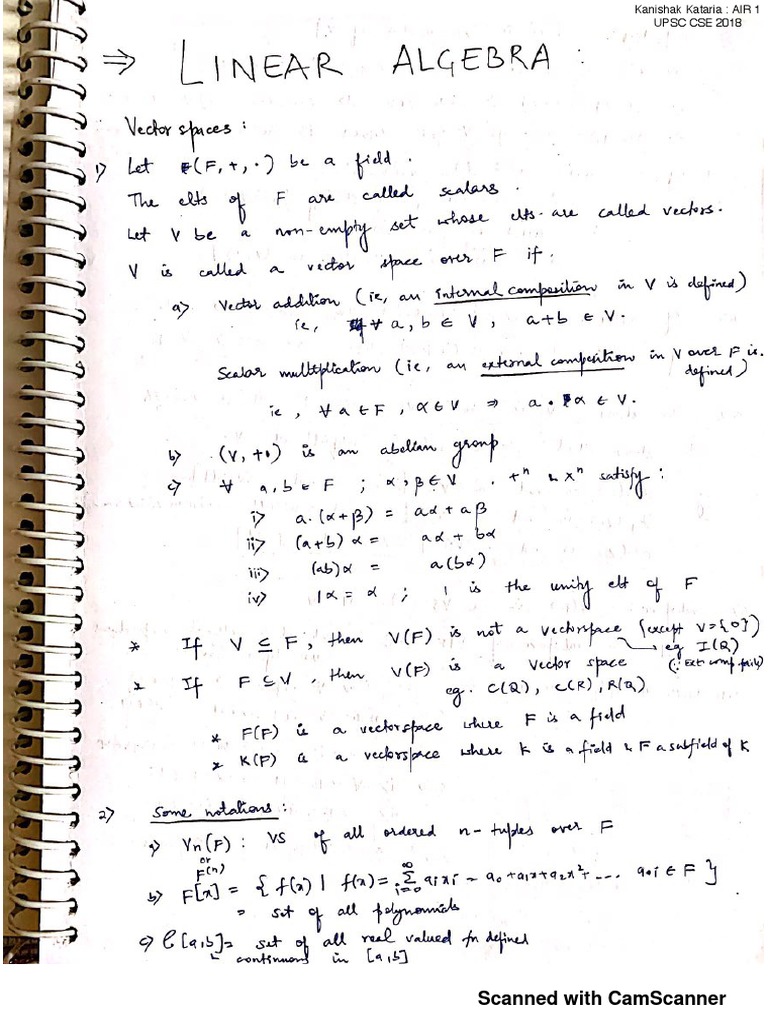 Kanishak Kataria : AIR 1
UPSC CSE 2018
⇒ LINEAR ALGEBRA :
Vector spaces :
1) Let (F, +, ·) be a field.
The elts of F are called scalars.
Let V be a non-empty set whose elts are called vectors.
V is called a vector space over F if.
a) Vector addition (ie, an internal composition in V is defined)
ie, ∀ a, b ∈ V, a+b ∈ V.
Scalar multiplication (ie, an external composition in V over F is defined)
ie, ∀ a ∈ F, α ∈ V ⇒ a.α ∈ V.
b) (V, +) is an abelian group
c) ∀ a, b ∈ F ; α, β ∈ V . +ⁿ & xⁿ satisfy :
i) a.(α+β) = aα + aβ
ii) (a+b)α = aα + bα
iii) (ab)α = a(bα)
iv) 1α = α ; 1 is the unity elt of F
* If V ⊆ F, then V(F) is not a vectorspace (except V={0})
eg I(Q)
(∵ Ext comp fails)
* If F ⊆ V, then V(F) is a vector space
eg. C(Q), C(R), R(Q)
* F(F) is a vectorspace where F is a field
* K(F) is a vectorspace where K is a field & F a subfield of K
2) Some notations :
a) Vn(F) : VS of all ordered n-tuples over F
or
F(n)
b) F[x] = { f(x) | f(x) = ∞ Σ i=0 aixi = a0+a1x+a2x²+ .... ai ∈ F }
= set of all polynomials
c) C[a,b] = set of all real valued fn defined
continuous in [a,b]
Scanned with CamScanner